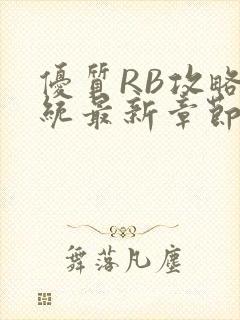 優質RB攻略
統最新章節
舞落凡塵